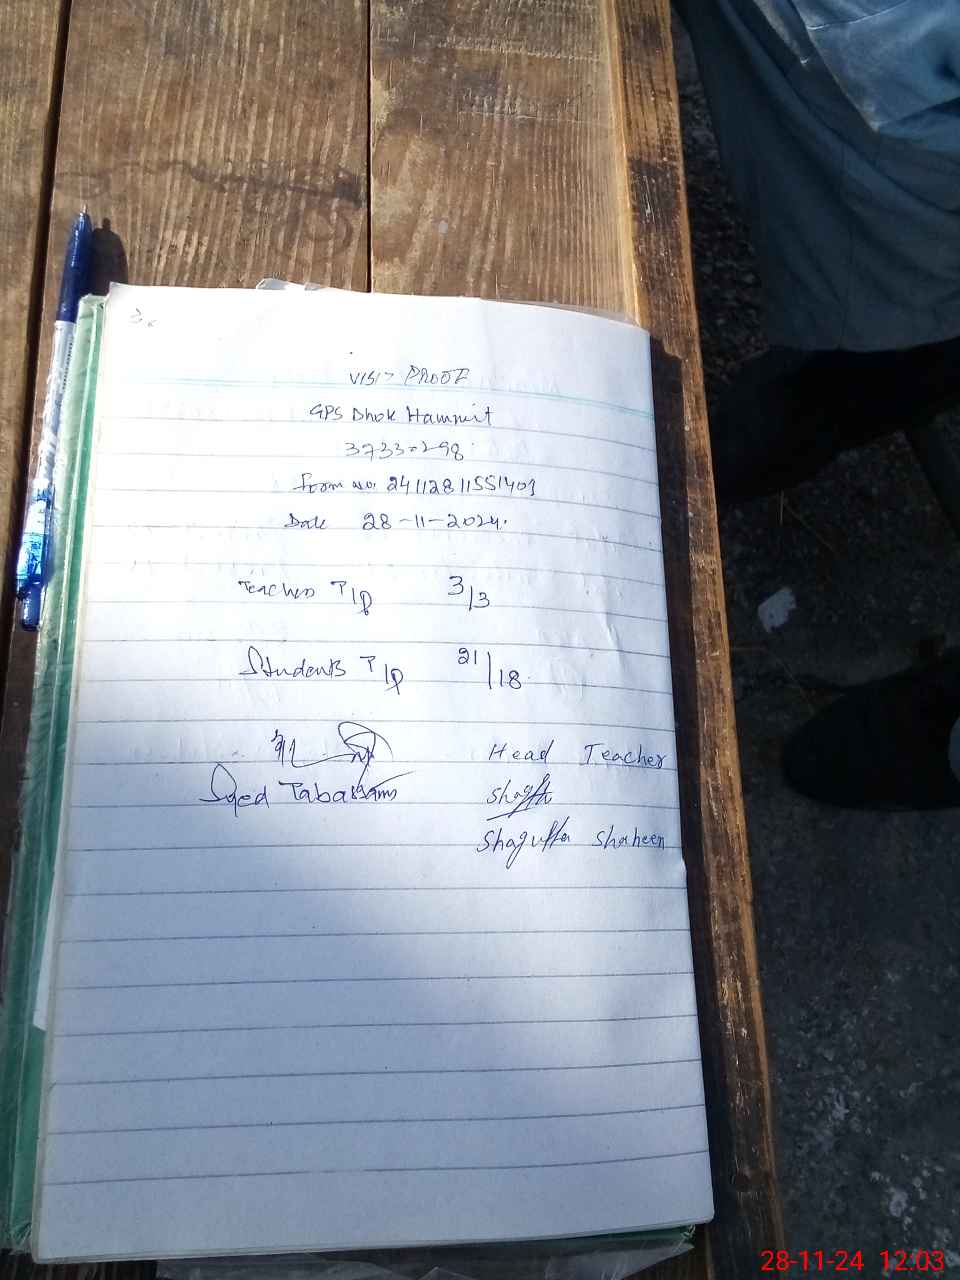 VISIT PROOF
GPS Dhok Hammit
37330298
Form no. 24112811551401
Date 28-11-2024.
Teachers T/P 3/3
Students T/P 21/18
Syed Tabassam
Head Teacher
Shagufta Shaheen
28-11-24 12:03